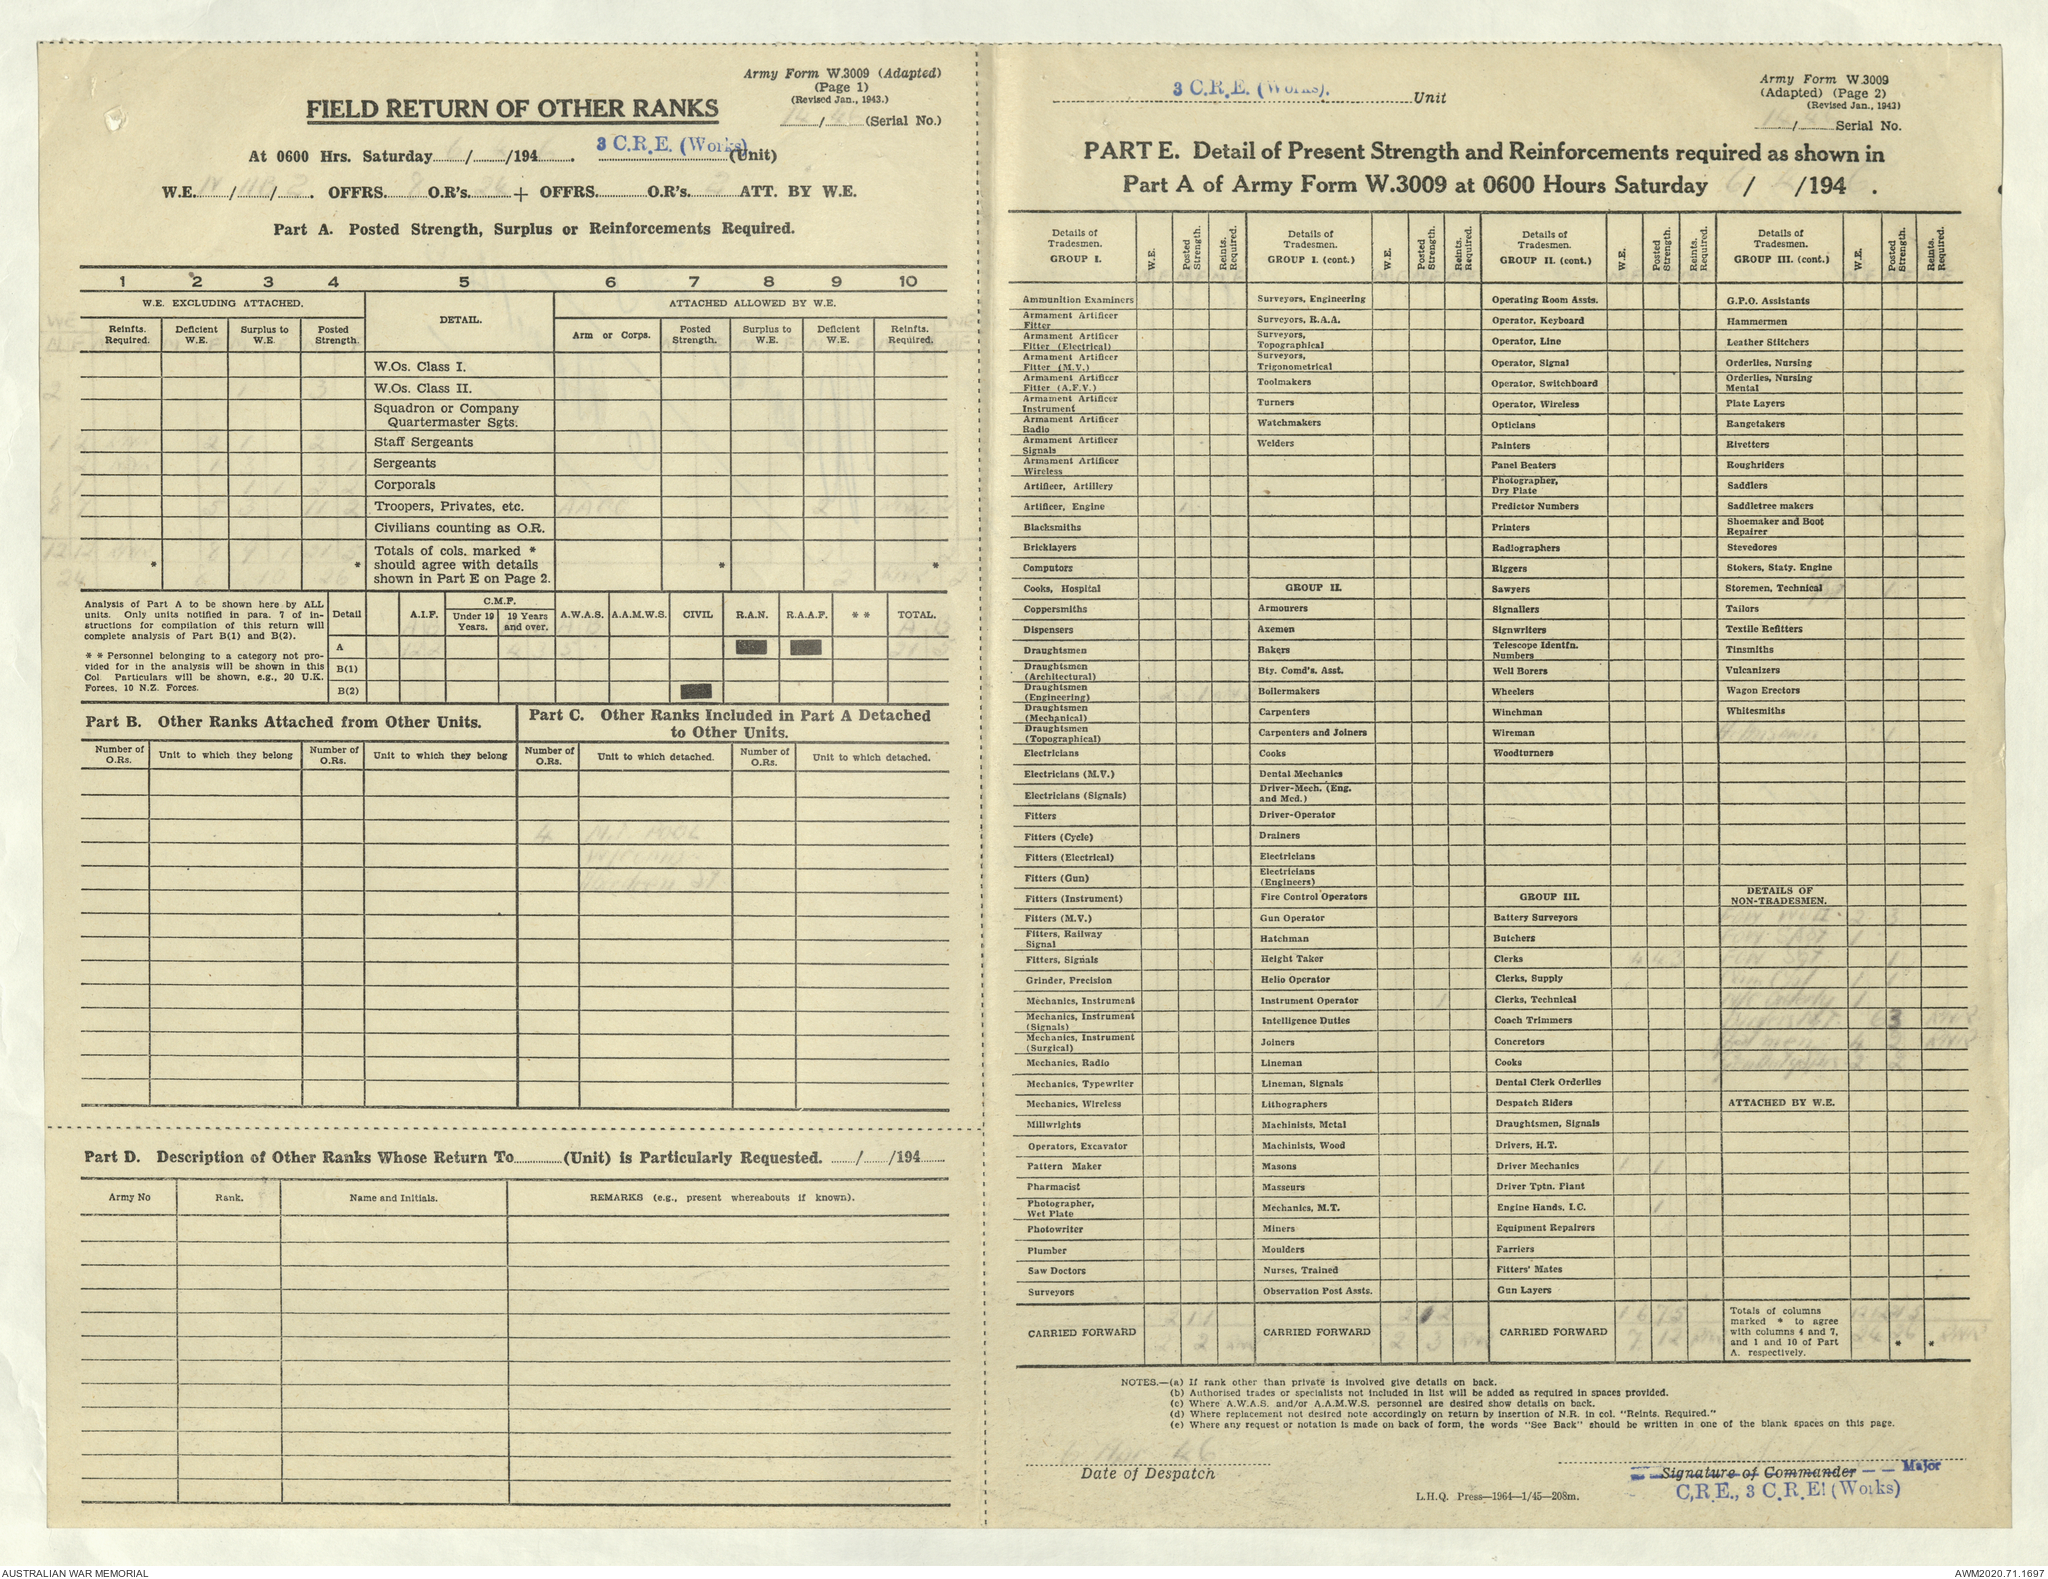 Army Form W.3009 (Adapted)
(Page 1)
(Revised Jan., 1943.)
FIELD RETURN OF OTHER RANKS
14/46 (Serial No.)
At 0600 Hrs. Saturday 6/4/1946. 3 C.R.E. (Works) (Unit)
W.E. / / . OFFRS. O.R's. 24 + OFFRS. O.R's. 2 ATT. BY W.E.
Part A. Posted Strength, Surplus or Reinforcements Required.
1 2 3 4 5 6 7 8 9 10
W.E. EXCLUDING ATTACHED. DETAIL. ATTACHED ALLOWED BY W.E.
Reinfts. Required. Deficient W.E. Surplus to W.E. Posted Strength. Arm or Corps. Posted Strength. Surplus to W.E. Deficient W.E. Reinfts. Required.
W.Os. Class I.
2 1 3 W.Os. Class II.
Squadron or Company
Quartermaster Sgts.
Staff Sergeants
Sergeants
Corporals
Troopers, Privates, etc. AACC 2
Civilians counting as O.R.
Totals of cols. marked *
should agree with details
shown in Part E on Page 2.
* * * *
Analysis of Part A to be shown here by ALL
units. Only units notified in para. 7 of in-
structions for compilation of this return will
complete analysis of Part B(1) and B(2).
* * Personnel belonging to a category not pro-
vided for in the analysis will be shown in this
Col. Particulars will be shown, e.g., 20 U.K.
Forces, 10 N.Z. Forces.
Detail A.I.F. C.M.F. Under 19 Years. 19 Years and over. A.W.A.S. A.A.M.W.S. CIVIL R.A.N. R.A.A.F. * * TOTAL.
A
B(1)
B(2)
Part B. Other Ranks Attached from Other Units.
Part C. Other Ranks Included in Part A Detached
to Other Units.
Number of O.Rs. Unit to which they belong Number of O.Rs. Unit to which they belong Number of O.Rs. Unit to which detached. Number of O.Rs. Unit to which detached.
4
Part D. Description of Other Ranks Whose Return To (Unit) is Particularly Requested. / /194
Army No Rank. Name and Initials. REMARKS (e.g., present whereabouts if known).
3 C.R.E. (Works). Unit
Army Form W.3009
(Adapted) (Page 2)
(Revised Jan., 1943)
14/46 Serial No.
PART E. Detail of Present Strength and Reinforcements required as shown in
Part A of Army Form W.3009 at 0600 Hours Saturday 6/4/1946.
Details of Tradesmen. GROUP I. W.E. Posted Strength. Reints. Required.
Ammunition Examiners
Armament Artificer Fitter
Armament Artificer Fitter (Electrical)
Armament Artificer Fitter (M.V.)
Armament Artificer Fitter (A.F.V.)
Armament Artificer Instrument
Armament Artificer Radio
Armament Artificer Signals
Armament Artificer Wireless
Artificer, Artillery
Artificer, Engine 1
Blacksmiths
Bricklayers
Computors
Cooks, Hospital
Coppersmiths
Dispensers
Draughtsmen
Draughtsmen (Architectural)
Draughtsmen (Engineering) 2 1
Draughtsmen (Mechanical)
Draughtsmen (Topographical)
Electricians
Electricians (M.V.)
Electricians (Signals)
Fitters
Fitters (Cycle)
Fitters (Electrical)
Fitters (Gun)
Fitters (Instrument)
Fitters (M.V.)
Fitters, Railway Signal
Fitters, Signals
Grinder, Precision
Mechanics, Instrument
Mechanics, Instrument (Signals)
Mechanics, Instrument (Surgical)
Mechanics, Radio
Mechanics, Typewriter
Mechanics, Wireless
Millwrights
Operators, Excavator
Pattern Maker
Pharmacist
Photographer, Wet Plate
Photowriter
Plumber
Saw Doctors
Surveyors
CARRIED FORWARD 2 2
Details of Tradesmen. GROUP I. (cont.) W.E. Posted Strength. Reints. Required.
Surveyors, Engineering
Surveyors, R.A.A.
Surveyors, Topographical
Surveyors, Trigonometrical
Toolmakers
Turners
Watchmakers
Welders
GROUP II.
Armourers
Axemen
Bakers
Bty. Comd's. Asst.
Boilermakers
Carpenters
Carpenters and Joiners
Cooks
Dental Mechanics
Driver-Mech. (Eng. and Med.)
Driver-Operator
Drainers
Electricians
Electricians (Engineers)
Fire Control Operators
Gun Operator
Hatchman
Height Taker
Helio Operator
Instrument Operator 1
Intelligence Duties
Joiners
Lineman
Lineman, Signals
Lithographers
Machinists, Metal
Machinists, Wood
Masons
Masseurs
Mechanics, M.T.
Miners
Moulders
Nurses, Trained
Observation Post Assts.
CARRIED FORWARD 2 3
Details of Tradesmen. GROUP II. (cont.) W.E. Posted Strength. Reints. Required.
Operating Room Assts.
Operator, Keyboard
Operator, Line
Operator, Signal
Operator, Switchboard
Operator, Wireless
Opticians
Painters
Panel Beaters
Photographer, Dry Plate
Predictor Numbers
Printers
Radiographers
Riggers
Sawyers
Signallers
Signwriters
Telescope Identfn. Numbers
Well Borers
Wheelers
Winchman
Wireman
Woodturners
GROUP III.
Battery Surveyors
Butchers
Clerks 4 4 3
Clerks, Supply
Clerks, Technical
Coach Trimmers
Concretors
Cooks
Dental Clerk Orderlies
Despatch Riders
Draughtsmen, Signals
Drivers, H.T.
Driver Mechanics 1 1
Driver Tptn. Plant
Engine Hands, I.C. 1
Equipment Repairers
Farriers
Fitters' Mates
Gun Layers
CARRIED FORWARD 7 12
Details of Tradesmen. GROUP III. (cont.) W.E. Posted Strength. Reints. Required.
G.P.O. Assistants
Hammermen
Leather Stitchers
Orderlies, Nursing
Orderlies, Nursing Mental
Plate Layers
Rangetakers
Rivetters
Roughriders
Saddlers
Saddletree makers
Shoemaker and Boot Repairer
Stevedores
Stokers, Staty. Engine
Storemen, Technical 1
Tailors
Textile Refitters
Tinsmiths
Vulcanizers
Wagon Erectors
Whitesmiths
DETAILS OF NON-TRADESMEN.
FOW WO II 2 3
FOW S/Sgt 1
FOW Sgt 1
ATTACHED BY W.E.
Totals of columns
marked * to agree
with columns 4 and 7,
and 1 and 10 of Part
A. respectively.
24 26 * *
NOTES.—(a) If rank other than private is involved give details on back.
(b) Authorised trades or specialists not included in list will be added as required in spaces provided.
(c) Where A.W.A.S. and/or A.A.M.W.S. personnel are desired show details on back.
(d) Where replacement not desired note accordingly on return by insertion of N.R. in col. "Reints. Required."
(e) Where any request or notation is made on back of form, the words "See Back" should be written in one of the blank spaces on this page.
6 Apr 46
Date of Despatch
Signature of Commander Major
C.R.E., 3 C.R.E! (Works)
L.H.Q. Press—1964—1/45—208m.
AUSTRALIAN WAR MEMORIAL
AWM2020.71.1697